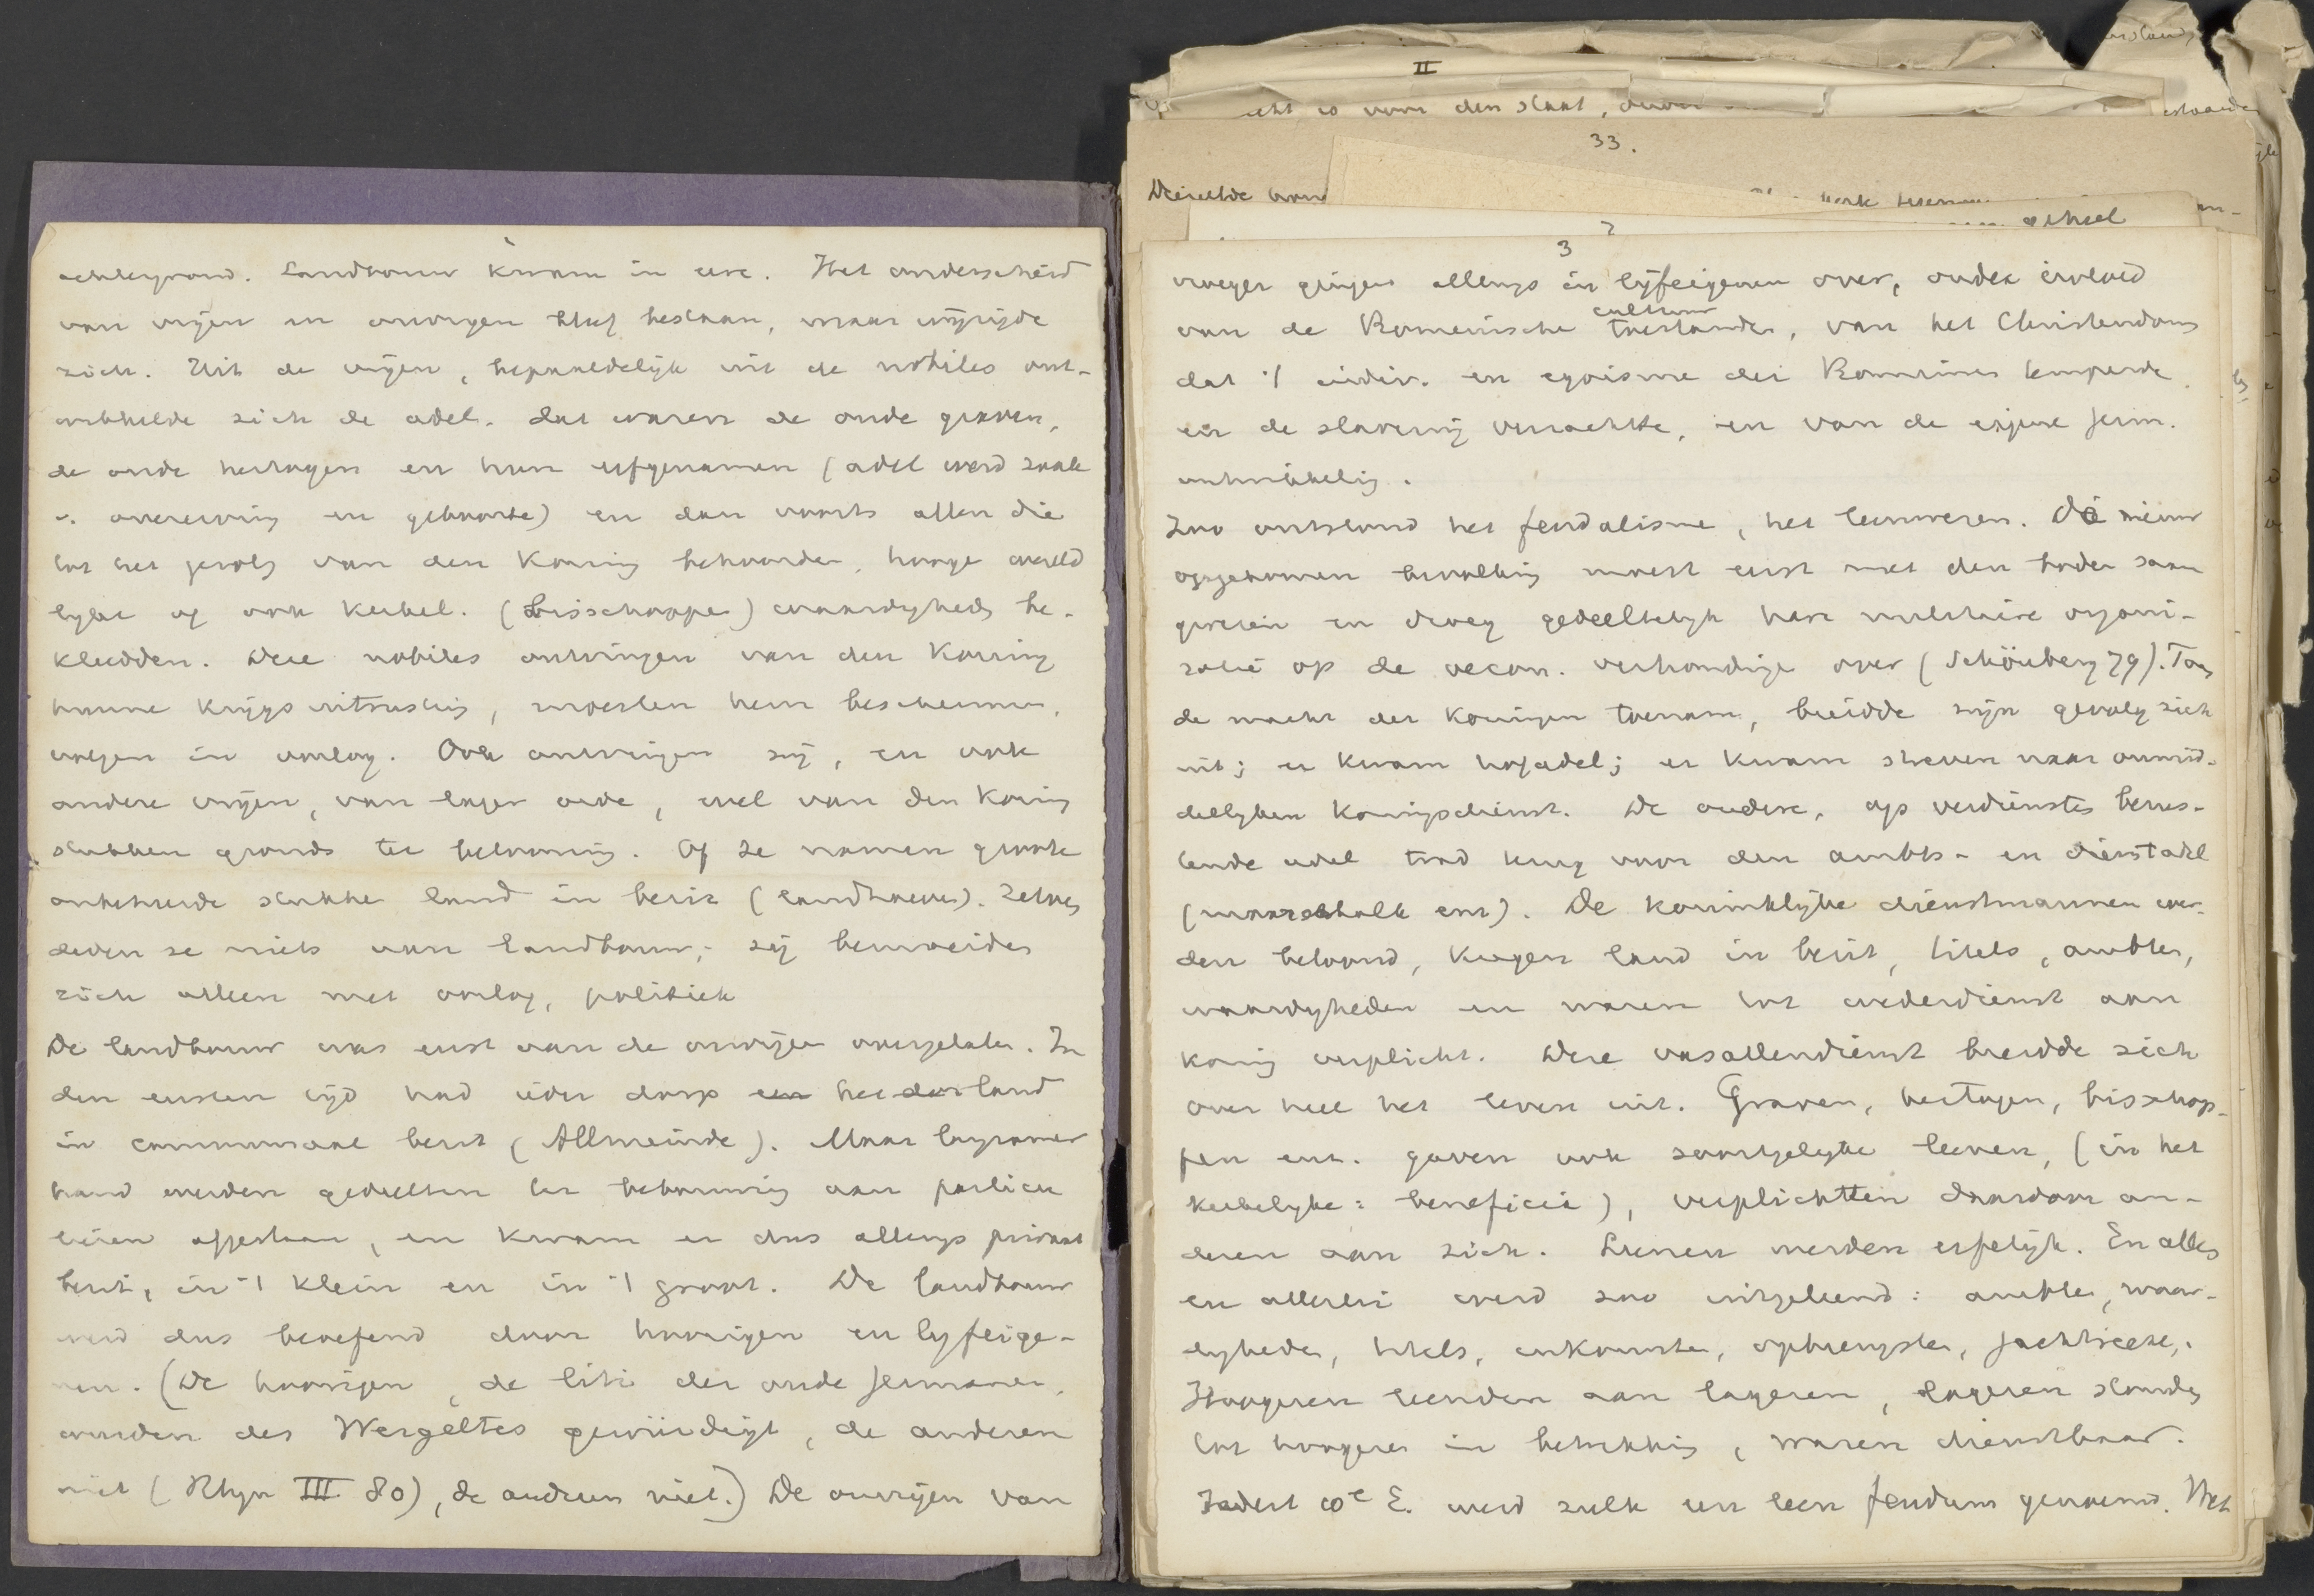 achtergrond. Landbouw kwam in eere. Het onderscheid
van vrijen en onvrijen bleef bestaan, maar wijzigde
zich. Uit de vrijen, bepaaldelijk uit de nobiles ont-
wikkelde zich de adel. Dat waren de oude graven,
de oude hertogen en hun erfgenamen (adel werd zaak
v. overerving en geboorte) en dan voorts allen die
tot het gevolg van den Koning behoorden, hooge wereld
lijke of ook kerkel. (bisschoppe) waardigheden be-
kleedden. Deze nobiles ontvingen van den Koning
hunne krijgsuitrusting, moesten hem beschermen,
volgen in oorlog. Ook ontvingen zij, en ook
andere vrijen, van lager orde, wel van den Koning
stukken gronds ter belooning. Of ze namen groote
onbeheerde stukken land in bezit (landhoeven). Zelve
deden ze niets aan landbouw; zij bemoeiden
zich alleen met oorlog, politiek
De landbouw was eerst aan de onvrijen overgelaten. In
den eersten tijd had ieder dorp het land
in communaal bezit (Allmeinde). Maar langzamer
hand werden gedeelten ter bebouwing aan particu
lieren afgestaan, en kwam er dus allengs privaat
bezit, in 't klein en in 't groot. De landbouw
werd dus beoefend door hoorigen en lijfeige-
nen. (De hoorigen, de liti der oude Germanen,
wurden des Wergeltes gewürdigt, de anderen
niet (Rhyn III 80), de anderen niet.) De onvrijen van
II
is voor den staat,
33.
Dezelfde
werk
geheel
3
vroeger gingen allengs in lijfeigenen over, onder invloed
cultuur
van de Romeinsche toestanden, van het Christendom
dat 't indiv. en egoisme der Romeinen temperde
en de slavernij verzachtte, en van de eigene Germ.
ontwikkeling.
Zoo ontstond het feudalisme, het leenwezen. De nieuw
opgekomen bevolking moest eerst met den bodem saam
groeien en droeg gedeeltelijk hare militaire organi-
satie op de oecon. verhoudingen over (Schönberg 79). Toen
de macht der Koningen toenam, breidde zijn gevolg zich
uit; er kwam hofadel; er kwam streven naar onmid-
dellijken Koningsdienst. De oudere, op verdiensten berus-
tende adel trad terug voor den ambts- en dienstadel
(maarschalk enz). De koninklijke dienstmannen wer-
den beloond, kregen land in bezit, titels, ambten,
waardigheden en waren tot wederdienst aan
koning verplicht. Deze vasallendienst breidde zich
over heel het leven uit. Graven, hertogen, bisschop-
pen enz. gaven ook soortgelijke leenen, (in het
kerkelijke: beneficia), verplichtten daardoor an-
deren aan zich. Leenen werden erfelijk. En alles
en allerlei werd zoo uitgeleend: ambten, waar-
digheden, titels, inkomsten, opbrengsten, jachtrecht,.
Hoogeren leenden aan lageren, lageren stonden
tot hoogeren in betrekking, waren dienstbaar.
Sedert 10e E. werd zulk een leen feudum genoemd. Met